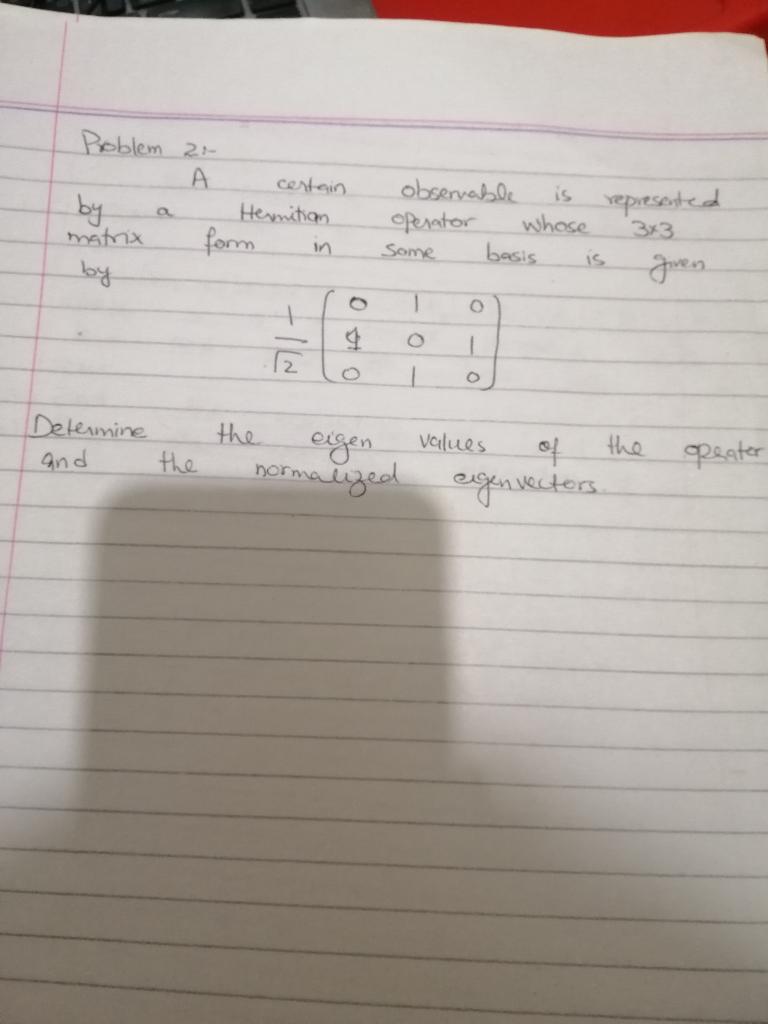 Problem 2:-
A certain observable is represented
by a Hermitian operator whose 3×3
matrix form in some basis is given
by
1/√2 ( 0 1 0
1 0 1
0 1 0 )
Determine the eigen values of the opeator
and the normalized eigenvectors.